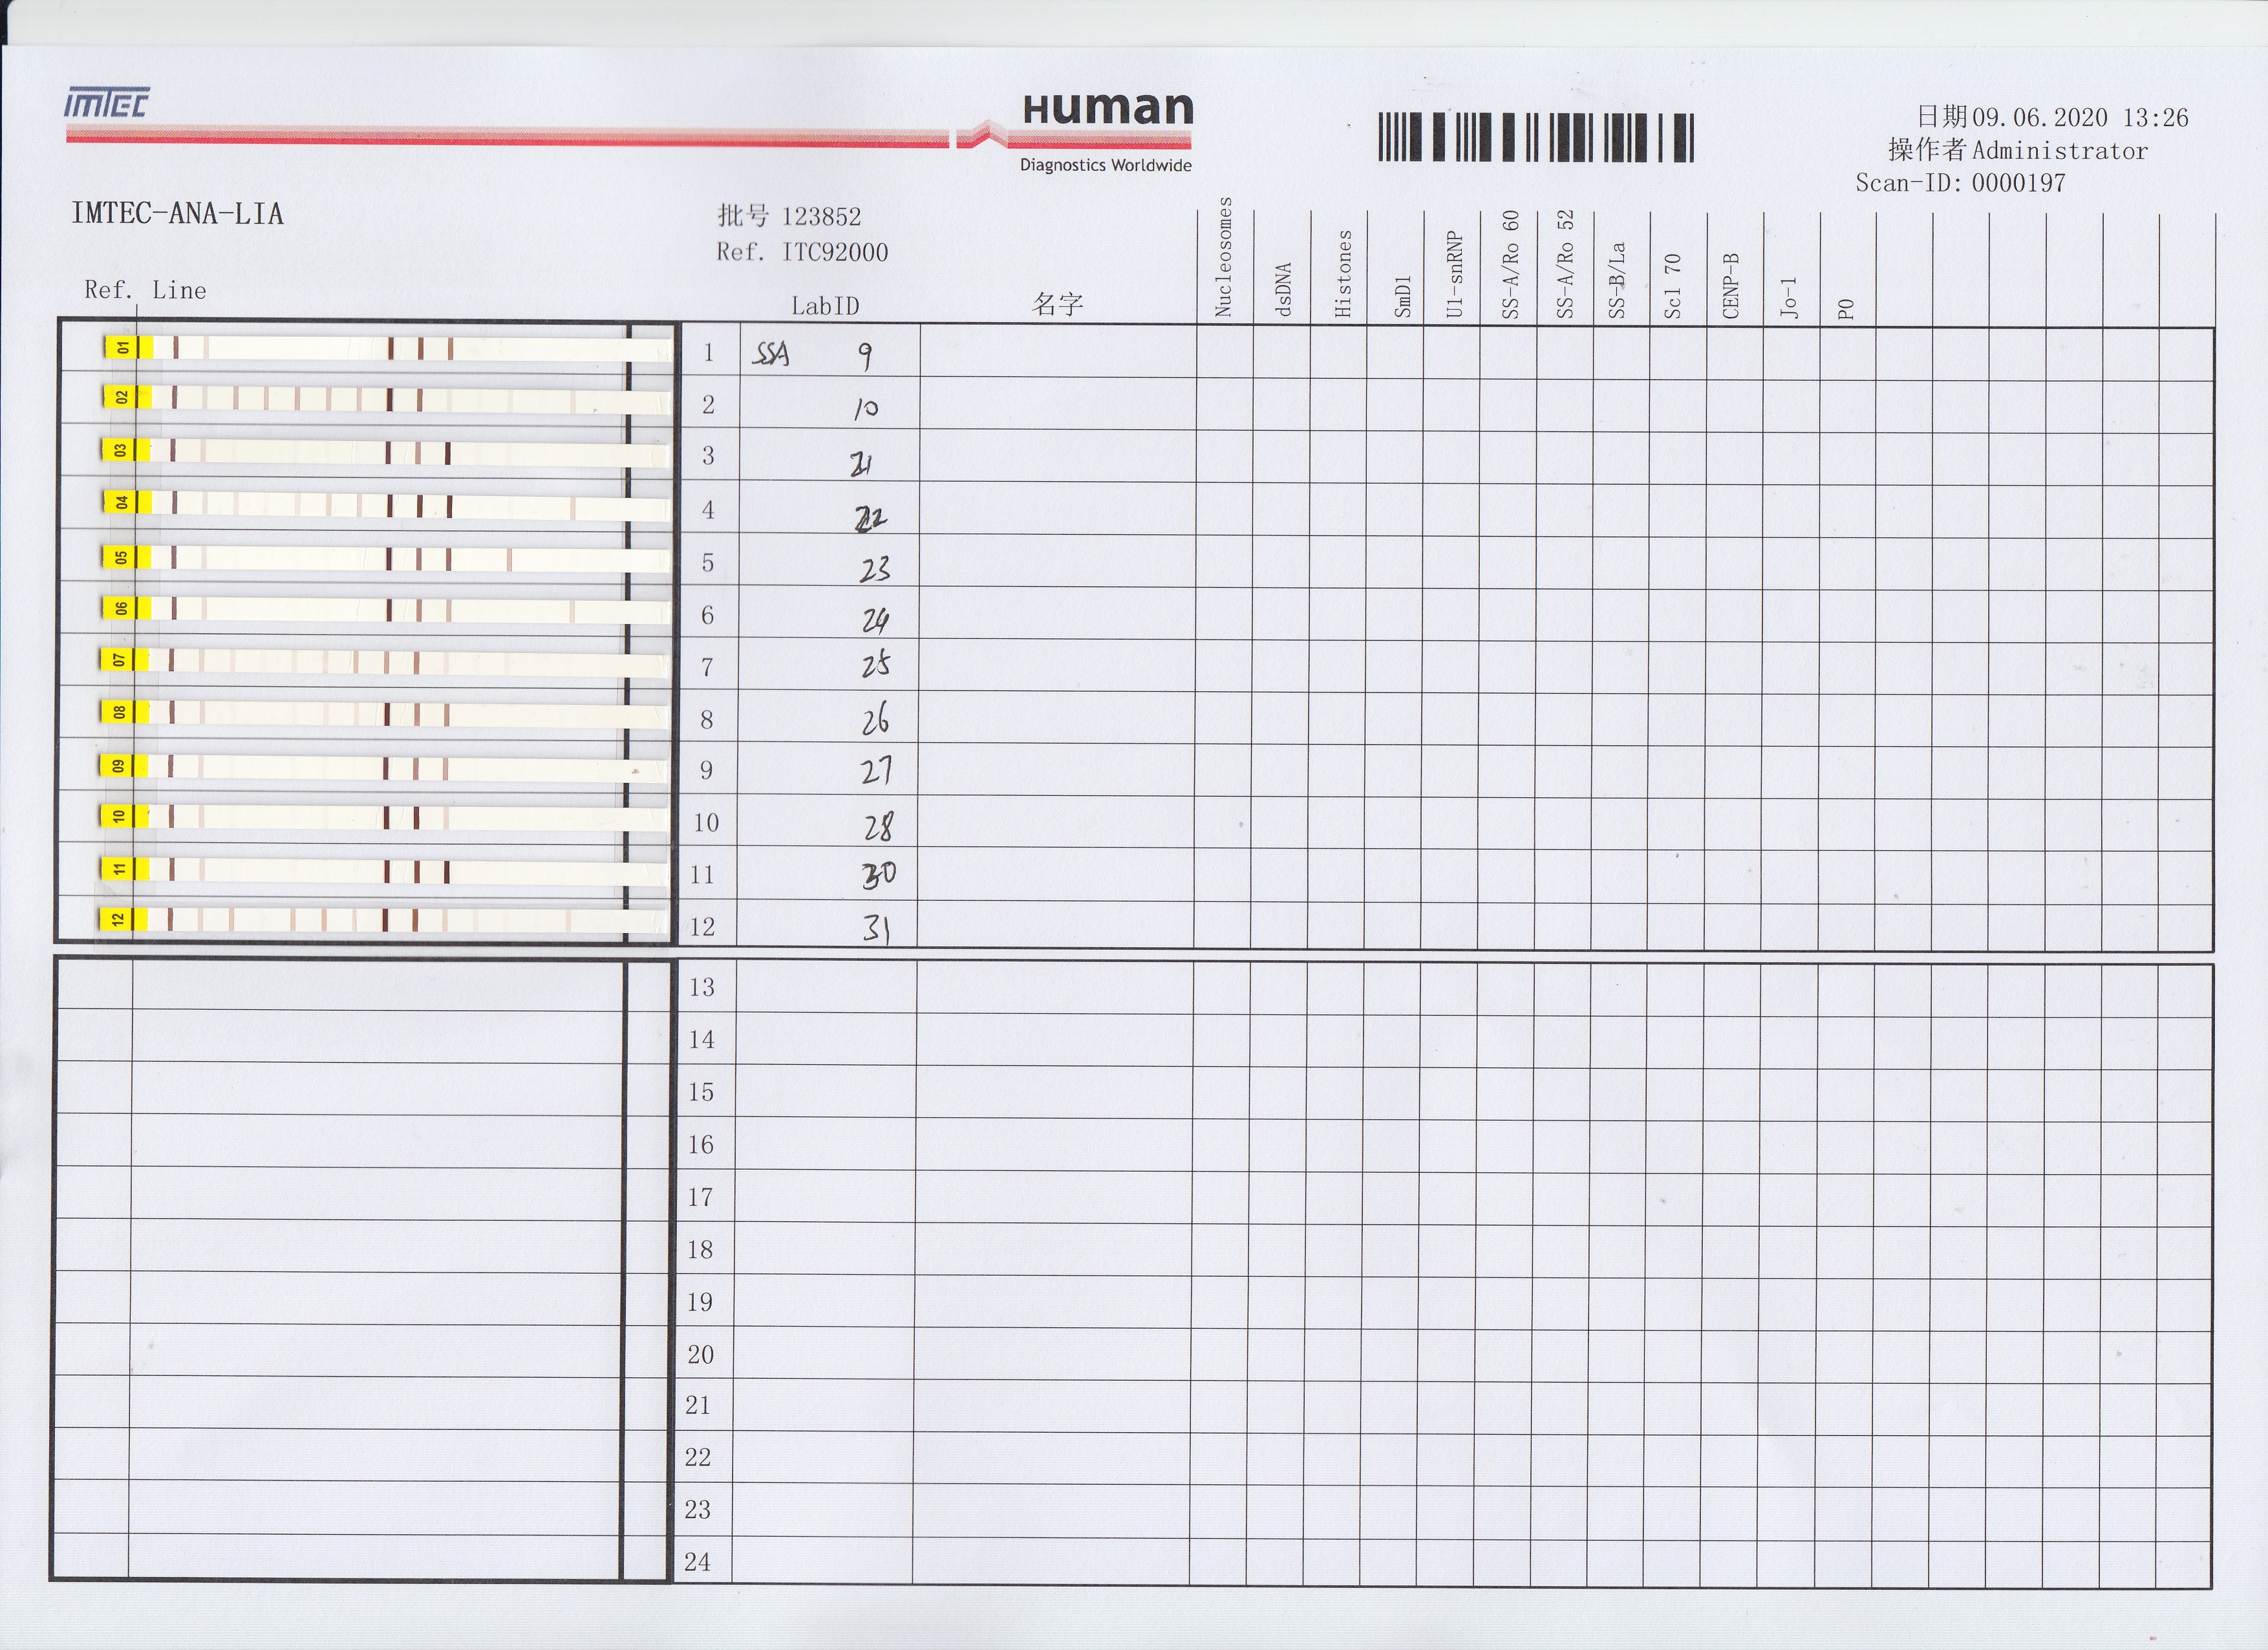 IMTEC
Human
Diagnostics Worldwide
日期 09.06.2020 13:26
操作者 Administrator
Scan-ID: 0000197
IMTEC-ANA-LIA
批号 123852
Ref. ITC92000
Ref. Line
LabID
名字
Nucleosomes
dsDNA
Histones
SmD1
U1-snRNP
SS-A/Ro 60
SS-A/Ro 52
SS-B/La
Scl 70
CENP-B
Jo-1
P0
01 1 SSA 9
02 2 10
03 3 21
04 4 22
05 5 23
06 6 24
07 7 25
08 8 26
09 9 27
10 10 28
11 11 30
12 12 31
13
14
15
16
17
18
19
20
21
22
23
24